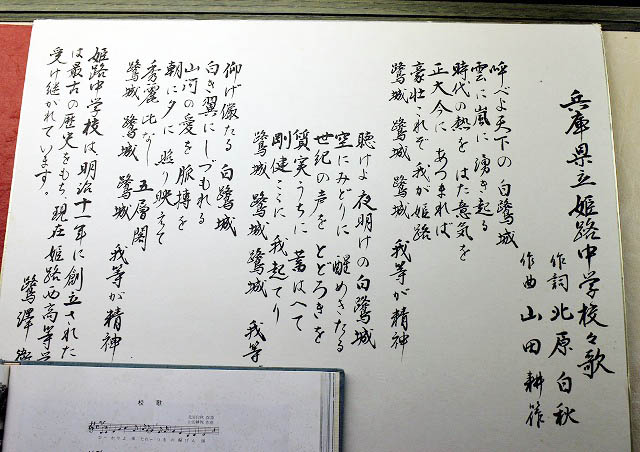 兵庫県立姫路中学校々歌
作詞 北原白秋
作曲 山田耕筰
呼べよ天下の 白鷺城
雲に嵐に 湧き起る
時代の熱を はた意気を
正大今に あつまれば
豪壮これぞ 我が姫路
鷺城 鷺城 鷺城 我等が精神
聴けよ夜明けの白鷺城
空にみどりに 醒めきたる
世紀の声を とどろきを
質実うちに 蓄はへて
剛健ここに 我起てり
鷺城 鷺城 鷺城 我等
仰げ儼たる 白鷺城
白き翼に しづもれる
山河の愛を 脈搏を
朝に夕に 照り映えて
秀麗比なし 五層閣
鷺城 鷺城 鷺城 我等が精神
姫路中学校は明治十一年に創立された
は最古の歴史をもち、現在 姫路西高等学
受け継がれています。
鷺澤
校歌